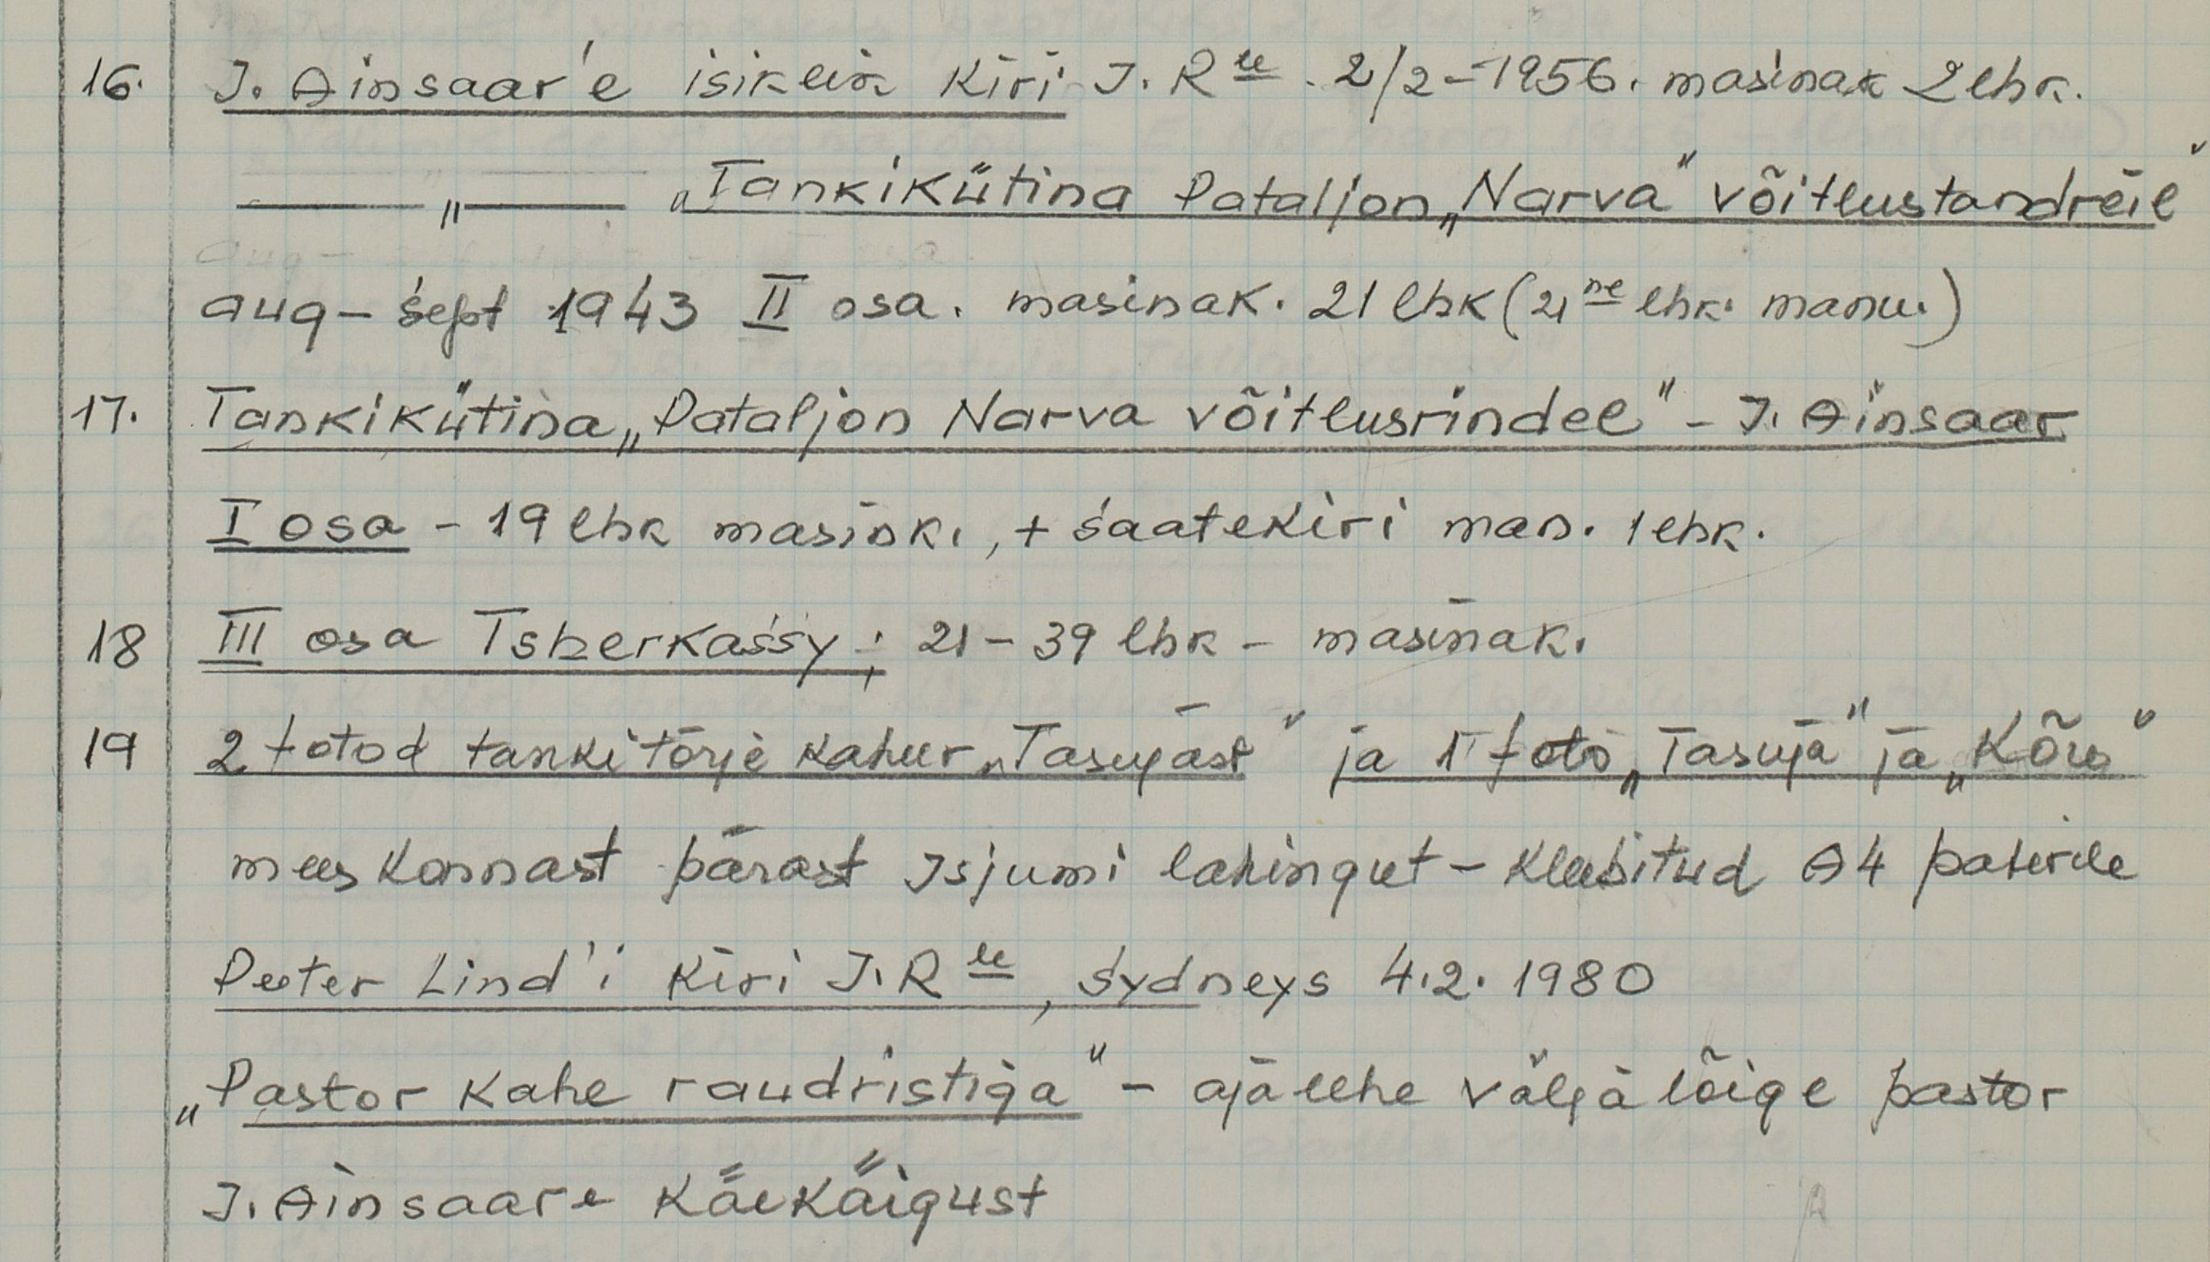 16. J. Ainsaar'e isiklik kiri J. R le. 2/2-1956. masinak 2 lhk.
—— „ —— „Tankikütina Pataljon „Narva" võitlustandreil"
aug-sept 1943 II osa. masinak. 21 lhk (21 ne lhk. manu.)
17. Tankikütina „Pataljon Narva võitlusrindel" - J. Ainsaar
I osa - 19 lhk masink., + saatekiri man. 1 lhk.
18 III osa Tsherkassy; 21-39 lhk - masinak.
19 2 fotod tankitõrje kahur „Tasujast" ja 1 foto „Tasuja" ja „Kõu"
meeskonnast pärast Isjumi lahingut - kleebitud A4 paberile
Peeter Lind'i kiri J. R le, Sydneys 4.2. 1980
„Pastor kahe raudristiga" - ajalehe väljalõige pastor
J. Ainsaare käekäigust